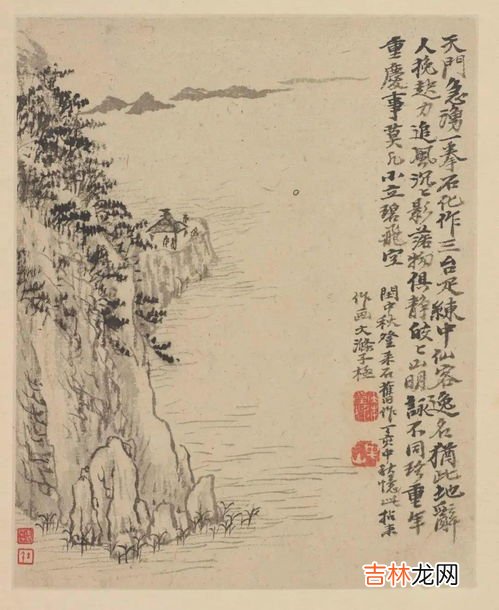 天門急湧一拳石化作三台足練中仙客逸名猶此地辭
人挽起力追風沉〻影落物俱靜皎〻山明詠不同珍重年
重慶事莫凡小立碧
閏中秋登采石舊作丁亥中秋憶此拈來
作畫大滌子極
吉林龙网